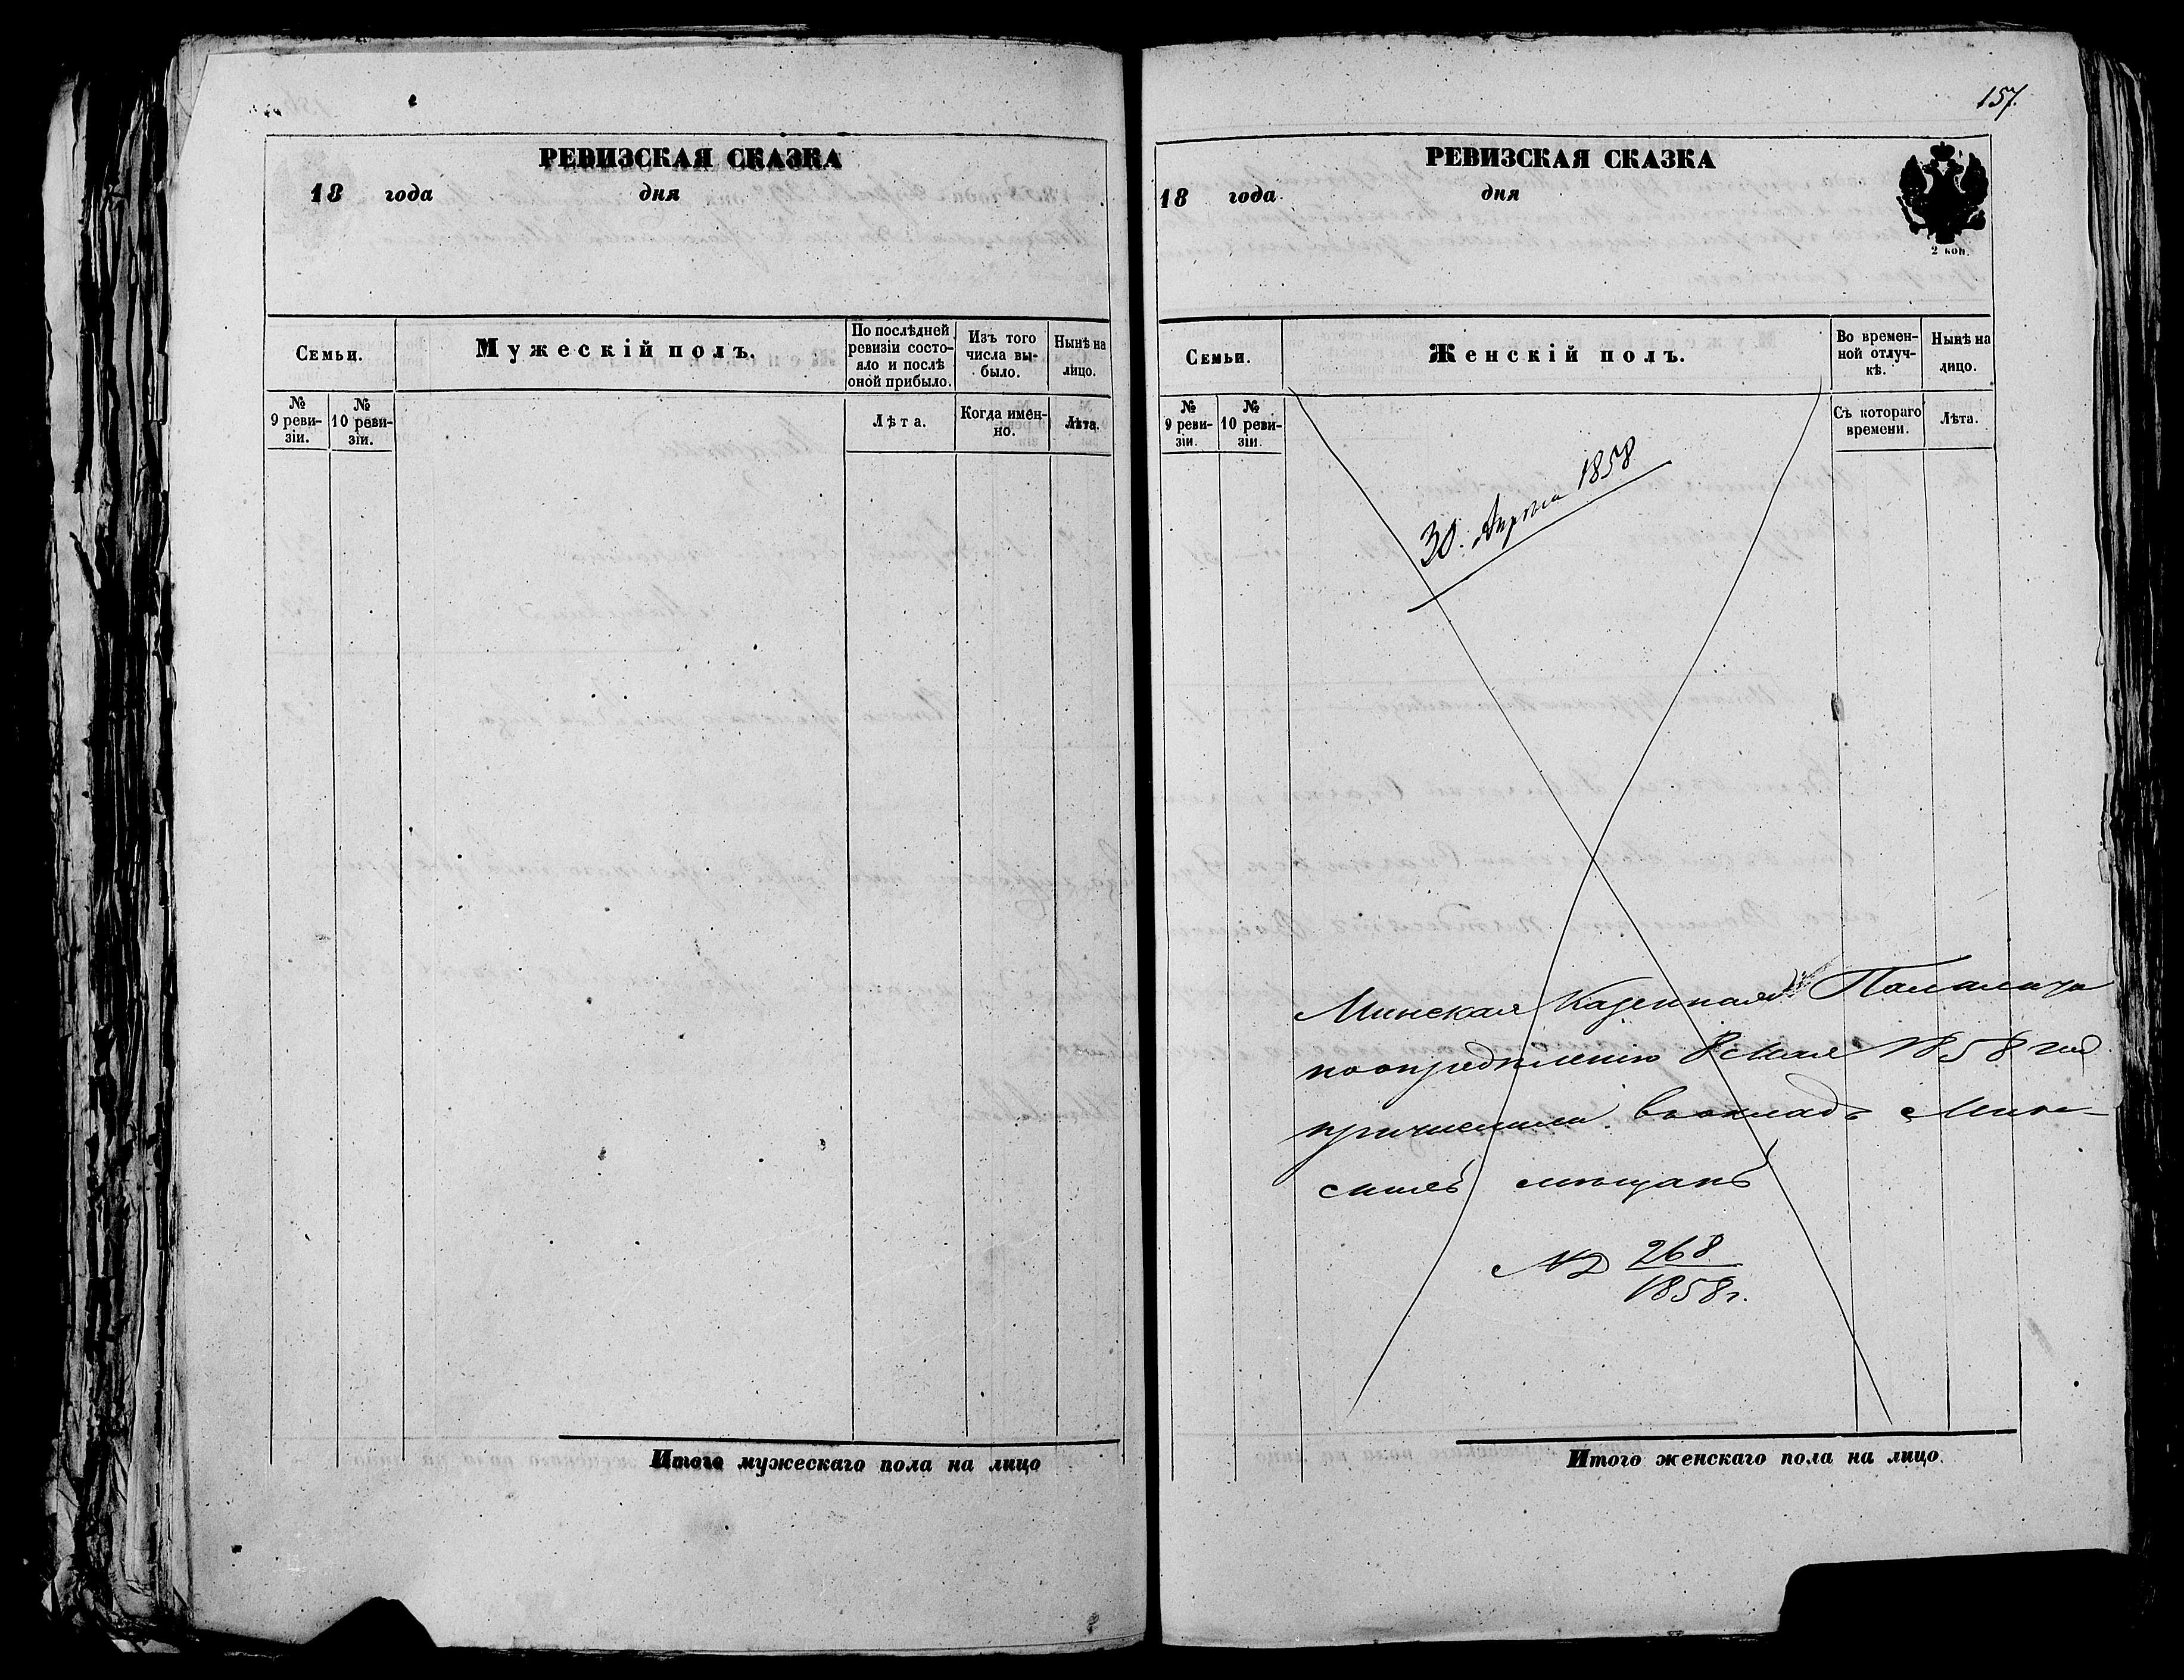 РЕВИЗСКАЯ СКАЗКА
18 года дня
Семьи.
Мужескій полъ.
По послѣдней ревизіи состо-
яло и послѣ
оной прибыло.
Изъ того
числа вы-
было.
Нынѣ на
лицо.
№
9 реви-
зіи.
№
10 реви-
зіи.
Лѣта.
Когда имен-
но.
Лѣта.
Итого мужескаго пола на лицо
157.
РЕВИЗСКАЯ СКАЗКА
18 года дня
2 коп.
Семьи.
Женскій полъ.
Во времен-
ной отлуч-
кѣ.
Нынѣ на
лицо.
№
9 реви-
зіи.
№
10 реви-
зіи.
Съ котораго
времени.
Лѣта.
30. Апрѣля 1858
Минская Казенная Палата
по опредѣленію 8 Мая 1858 год
причислила въ окладъ Мин-
скихъ мѣщанъ
№ 268
1858 г.
Итого женскаго пола на лицо